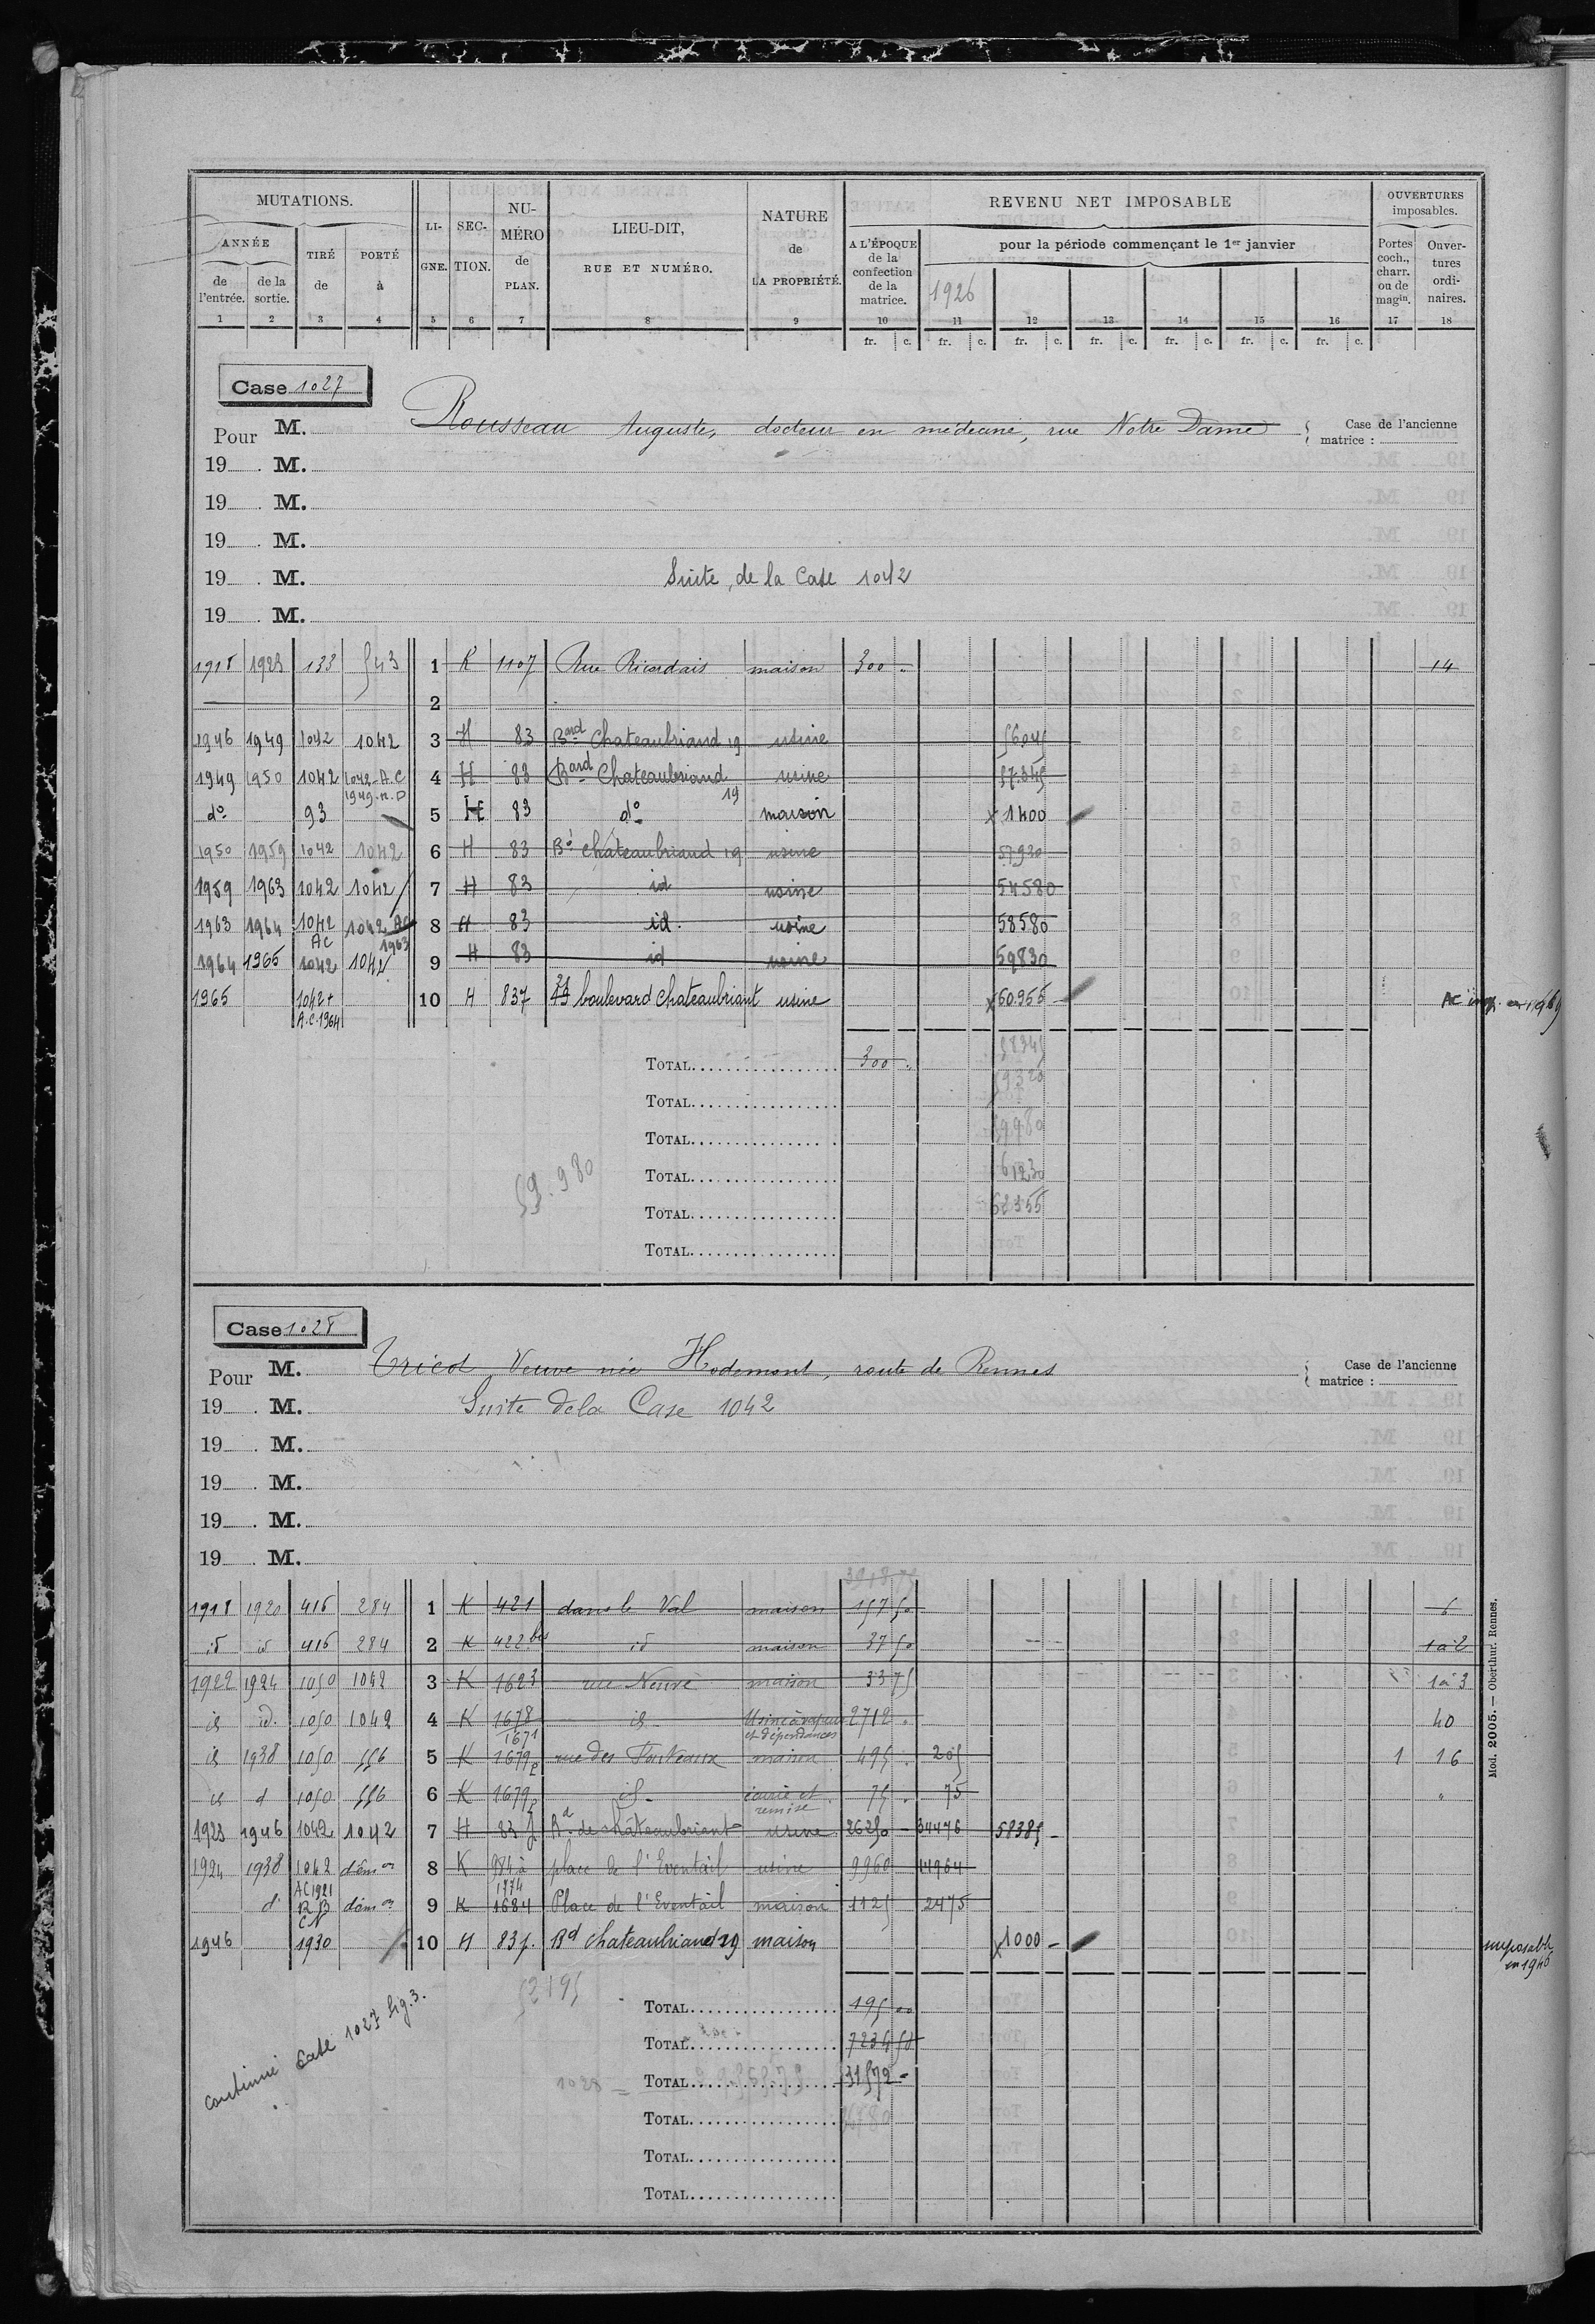 MUTATIONS. LI-GNE. SEC-TION. NU-MÉRO de PLAN. LIEU-DIT, RUE ET NUMÉRO. NATURE de LA PROPRIÉTÉ. REVENU NET IMPOSABLE OUVERTURES imposables.
ANNÉE TIRÉ de PORTÉ à A L'ÉPOQUE de la confection de la matrice. pour la période commençant le 1er janvier Portes coch., charr. ou de magin. Ouver-tures ordi-naires.
de l'entrée. de la sortie. 1926
1 2 3 4 5 6 7 8 9 10 11 12 13 14 15 16 17 18
fr. c. fr. c. fr. c. fr. c. fr. c. fr. c. fr. c.
Case 1027
Pour M. Rousseau Auguste, docteur en médecine, rue Notre Dame Case de l'ancienne matrice :
19 . M.
19 . M.
19 . M.
19 . M. Suite, de la Case 1042
19 . M.
1918 1923 133 543 1 K 1107 Rue Ricordais maison 300 . 14
2
1946 1949 1042 1042 3 H 83 Bard Chateaubriand 19 usine 56045
1949 1950 1042 1042-A.C 1949.n.D 4 H 83 Bard Chateaubriand 19 usine 57.345
do 93 5 H 83 do maison x 1400
1950 1959 1042 1042 6 H 83 Bd chateaubriand 19 usine 57920
1959 1963 1042 1042 7 H 83 id usine 54580
1963 1964 1042 AC 1042 AC 1963 8 H 83 id. usine 58580
1964 1965 1042 1042 9 H 83 id usine 59830
1965 1042+ A.C.1964 10 H 837 boulevard Chateaubriant usine x60.955 AC
TOTAL 300 . 58345
TOTAL 59320
TOTAL 59980
59.980 TOTAL 61230
TOTAL 62355
TOTAL
Case 1028
Pour M. Tricot Veuve née Hodemont, route de Rennes Case de l'ancienne matrice :
19 . M. Suite de la Case 1042
19 . M.
19 . M.
19 . M.
19 . M.
1918 1920 416 284 1 K 421 dans le Val maison 157 50 6
id id 416 284 2 K 422 bis id maison 37 50 1 à 2
1922 1924 1050 1042 3 K 1623 rue Neuve maison 33 75 1 à 3
id id. 1050 1042 4 K 1678 1671 id Usine à vapeur et dépendances 2712 . 40
id 1938 1050 556 5 K 1679 rue des maison 495 . 205 1 16
id d 1050 556 6 K 1679 id écurie et remise 75 . 75 "
1923 1946 1042 1042 7 H 83 Bd de Châteaubriant usine 26250 - 34476 58385 -
1924 1938 1042 dém on 8 K 984 à 1774 place de l'Eventail usine 9960 14964
d AC 1921 R B CN dém on 9 K 1684 Place de l'Eventail maison 1125 2475
1946 1930 10 H 83p. Bd Chateaubriand 29 maison x1000 - imposable en 1946
52195 TOTAL 195 00
TOTAL 7234 50
continué Case 1027 lig.3. 1028 = TOTAL 31572 -
TOTAL
TOTAL
TOTAL
Mod. 2005. — Oberthur. Rennes.